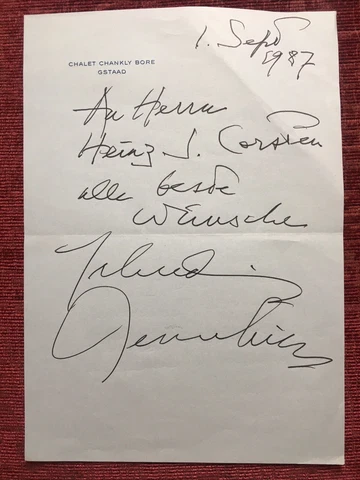 CHALET CHANKLY BORE
GSTAAD
1. Sept
1987
An Herrn
Heinz J. Corsten
alle beste
Wünsche
Yehudi
Menuhin